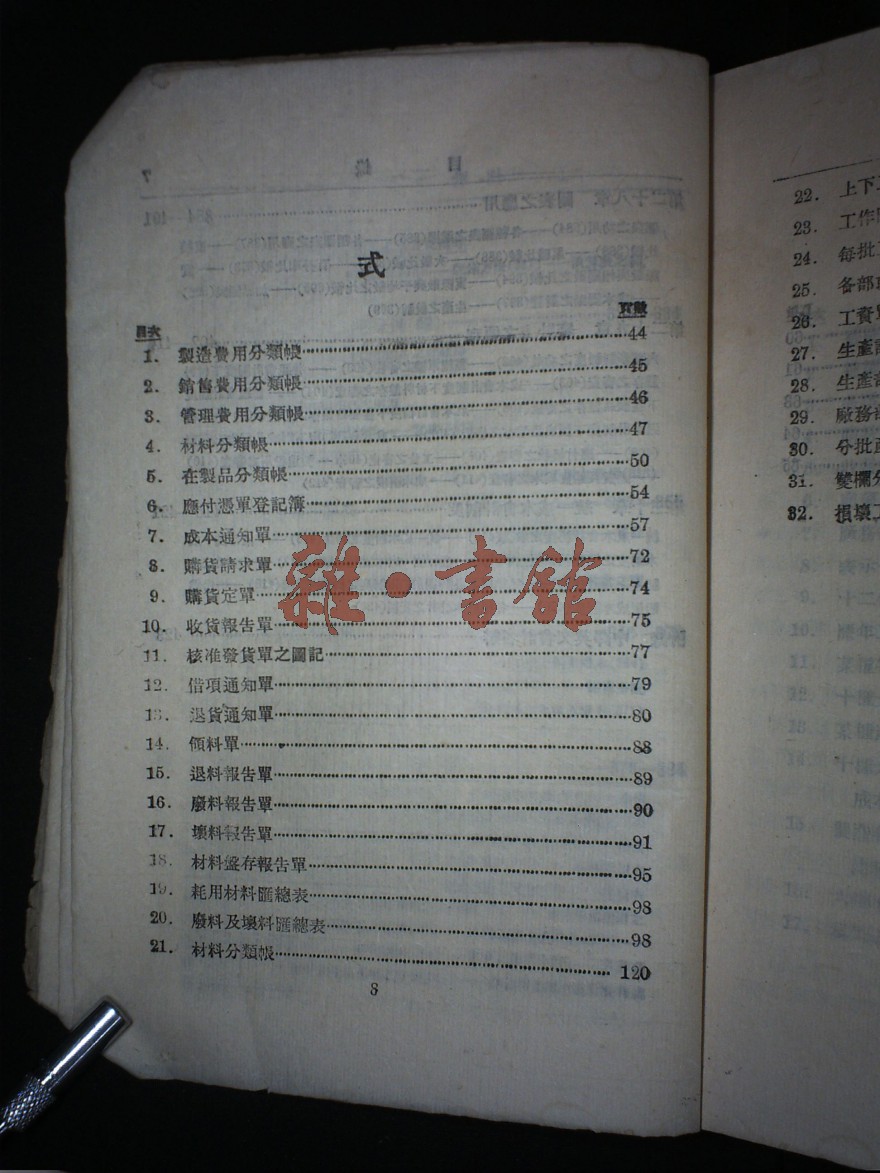 式
目次 頁數
1. 製造費用分類帳 44
2. 銷售費用分類帳 45
3. 管理費用分類帳 46
4. 材料分類帳 47
5. 在製品分類帳 50
6. 應付憑單登記簿 54
7. 成本通知單 57
8. 購貨請求單 72
9. 購貨定單 74
10. 收貨報告單 75
11. 核准發貨單之圖記 77
12. 借項通知單 79
13. 退貨通知單 80
14. 領料單 88
15. 退料報告單 89
16. 廢料報告單 90
17. 壞料報告單 91
18. 材料盤存報告單 95
19. 耗用材料匯總表 98
20. 廢料及壞料匯總表 98
21. 材料分類帳 120
8
雜·書館
22. 上下工
23. 工作
24. 每批工
25. 各部
26. 工資單
27. 生產
28. 生產
29. 廠務
30. 分批
31. 雙欄分
32. 損壞工